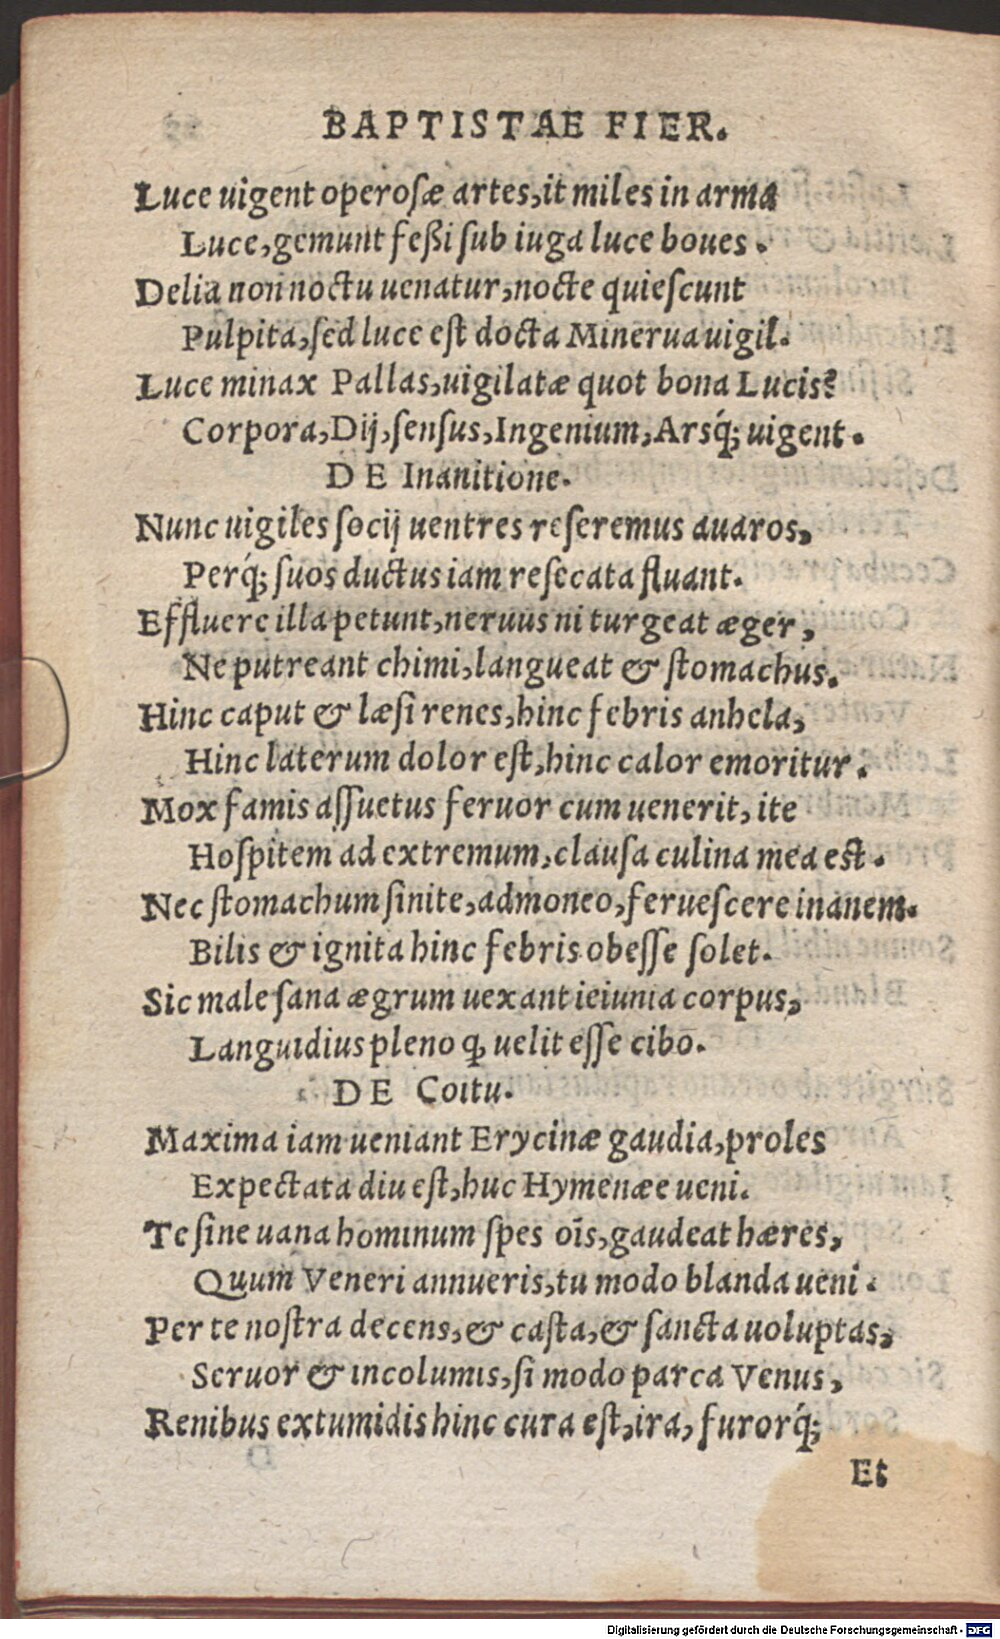 BAPTISTAE FIER.
Luce uigent operosæ artes, it miles in arma
Luce, gemunt feßi sub iuga luce boues.
Delia non noctu uenatur, nocte quiescunt
Pulpita, sed luce est docta Minerua uigil.
Luce minax Pallas, uigilatæ quot bona Lucis?
Corpora, Dij, sensus, Ingenium, Arsq́; uigent.
DE Inanitione.
Nunc uigiles socij uentres reseremus auaros,
Perq́; suos ductus iam resecata fluant.
Effluere illa petunt, neruus ni turgeat æger,
Ne putreant chimi, langueat & stomachus.
Hinc caput & læsi renes, hinc febris anhela,
Hinc laterum dolor est, hinc calor emoritur.
Mox famis assuetus feruor cum uenerit, ite
Hospitem ad extremum, clausa culina mea est.
Nec stomachum sinite, admoneo, feruescere inanem.
Bilis & ignita hinc febris obesse solet.
Sic male sana ægrum uexant ieiunia corpus,
Languidius pleno ꝗ uelit esse cibo.
DE Coitu.
Maxima iam ueniant Erycinæ gaudia, proles
Expectata diu est, huc Hymenæe ueni.
Te sine uana hominum spes oīs, gaudeat hæres,
Quum Veneri annueris, tu modo blanda ueni.
Per te nostra decens, & casta, & sancta uoluptas,
Seruor & incolumis, si modo parca Venus,
Renibus extumidis hinc cura est, ira, furorq́;
Et
Digitalisierung gefördert durch die Deutsche Forschungsgemeinschaft - DFG